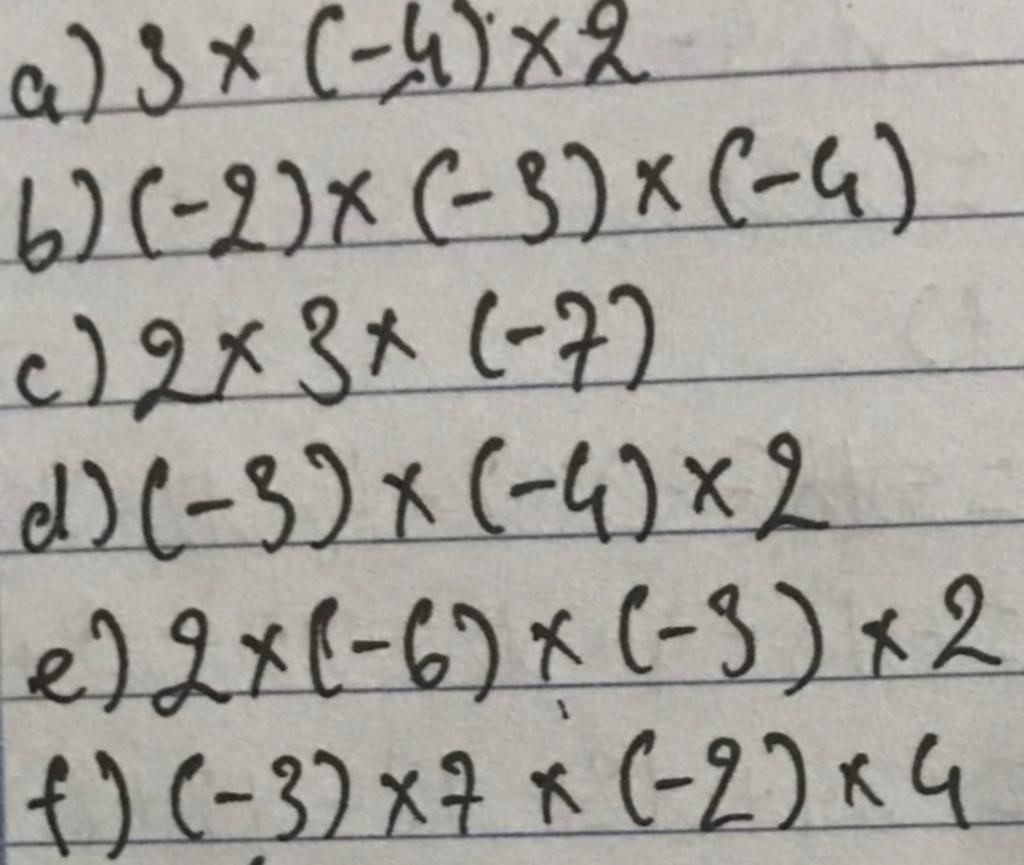 a) 3 × (-4) × 2
b) (-2) × (-3) × (-4)
c) 2 × 3 × (-7)
d) (-3) × (-4) × 2
e) 2 × (-6) × (-3) × 2
f) (-3) × 7 × (-2) × 4